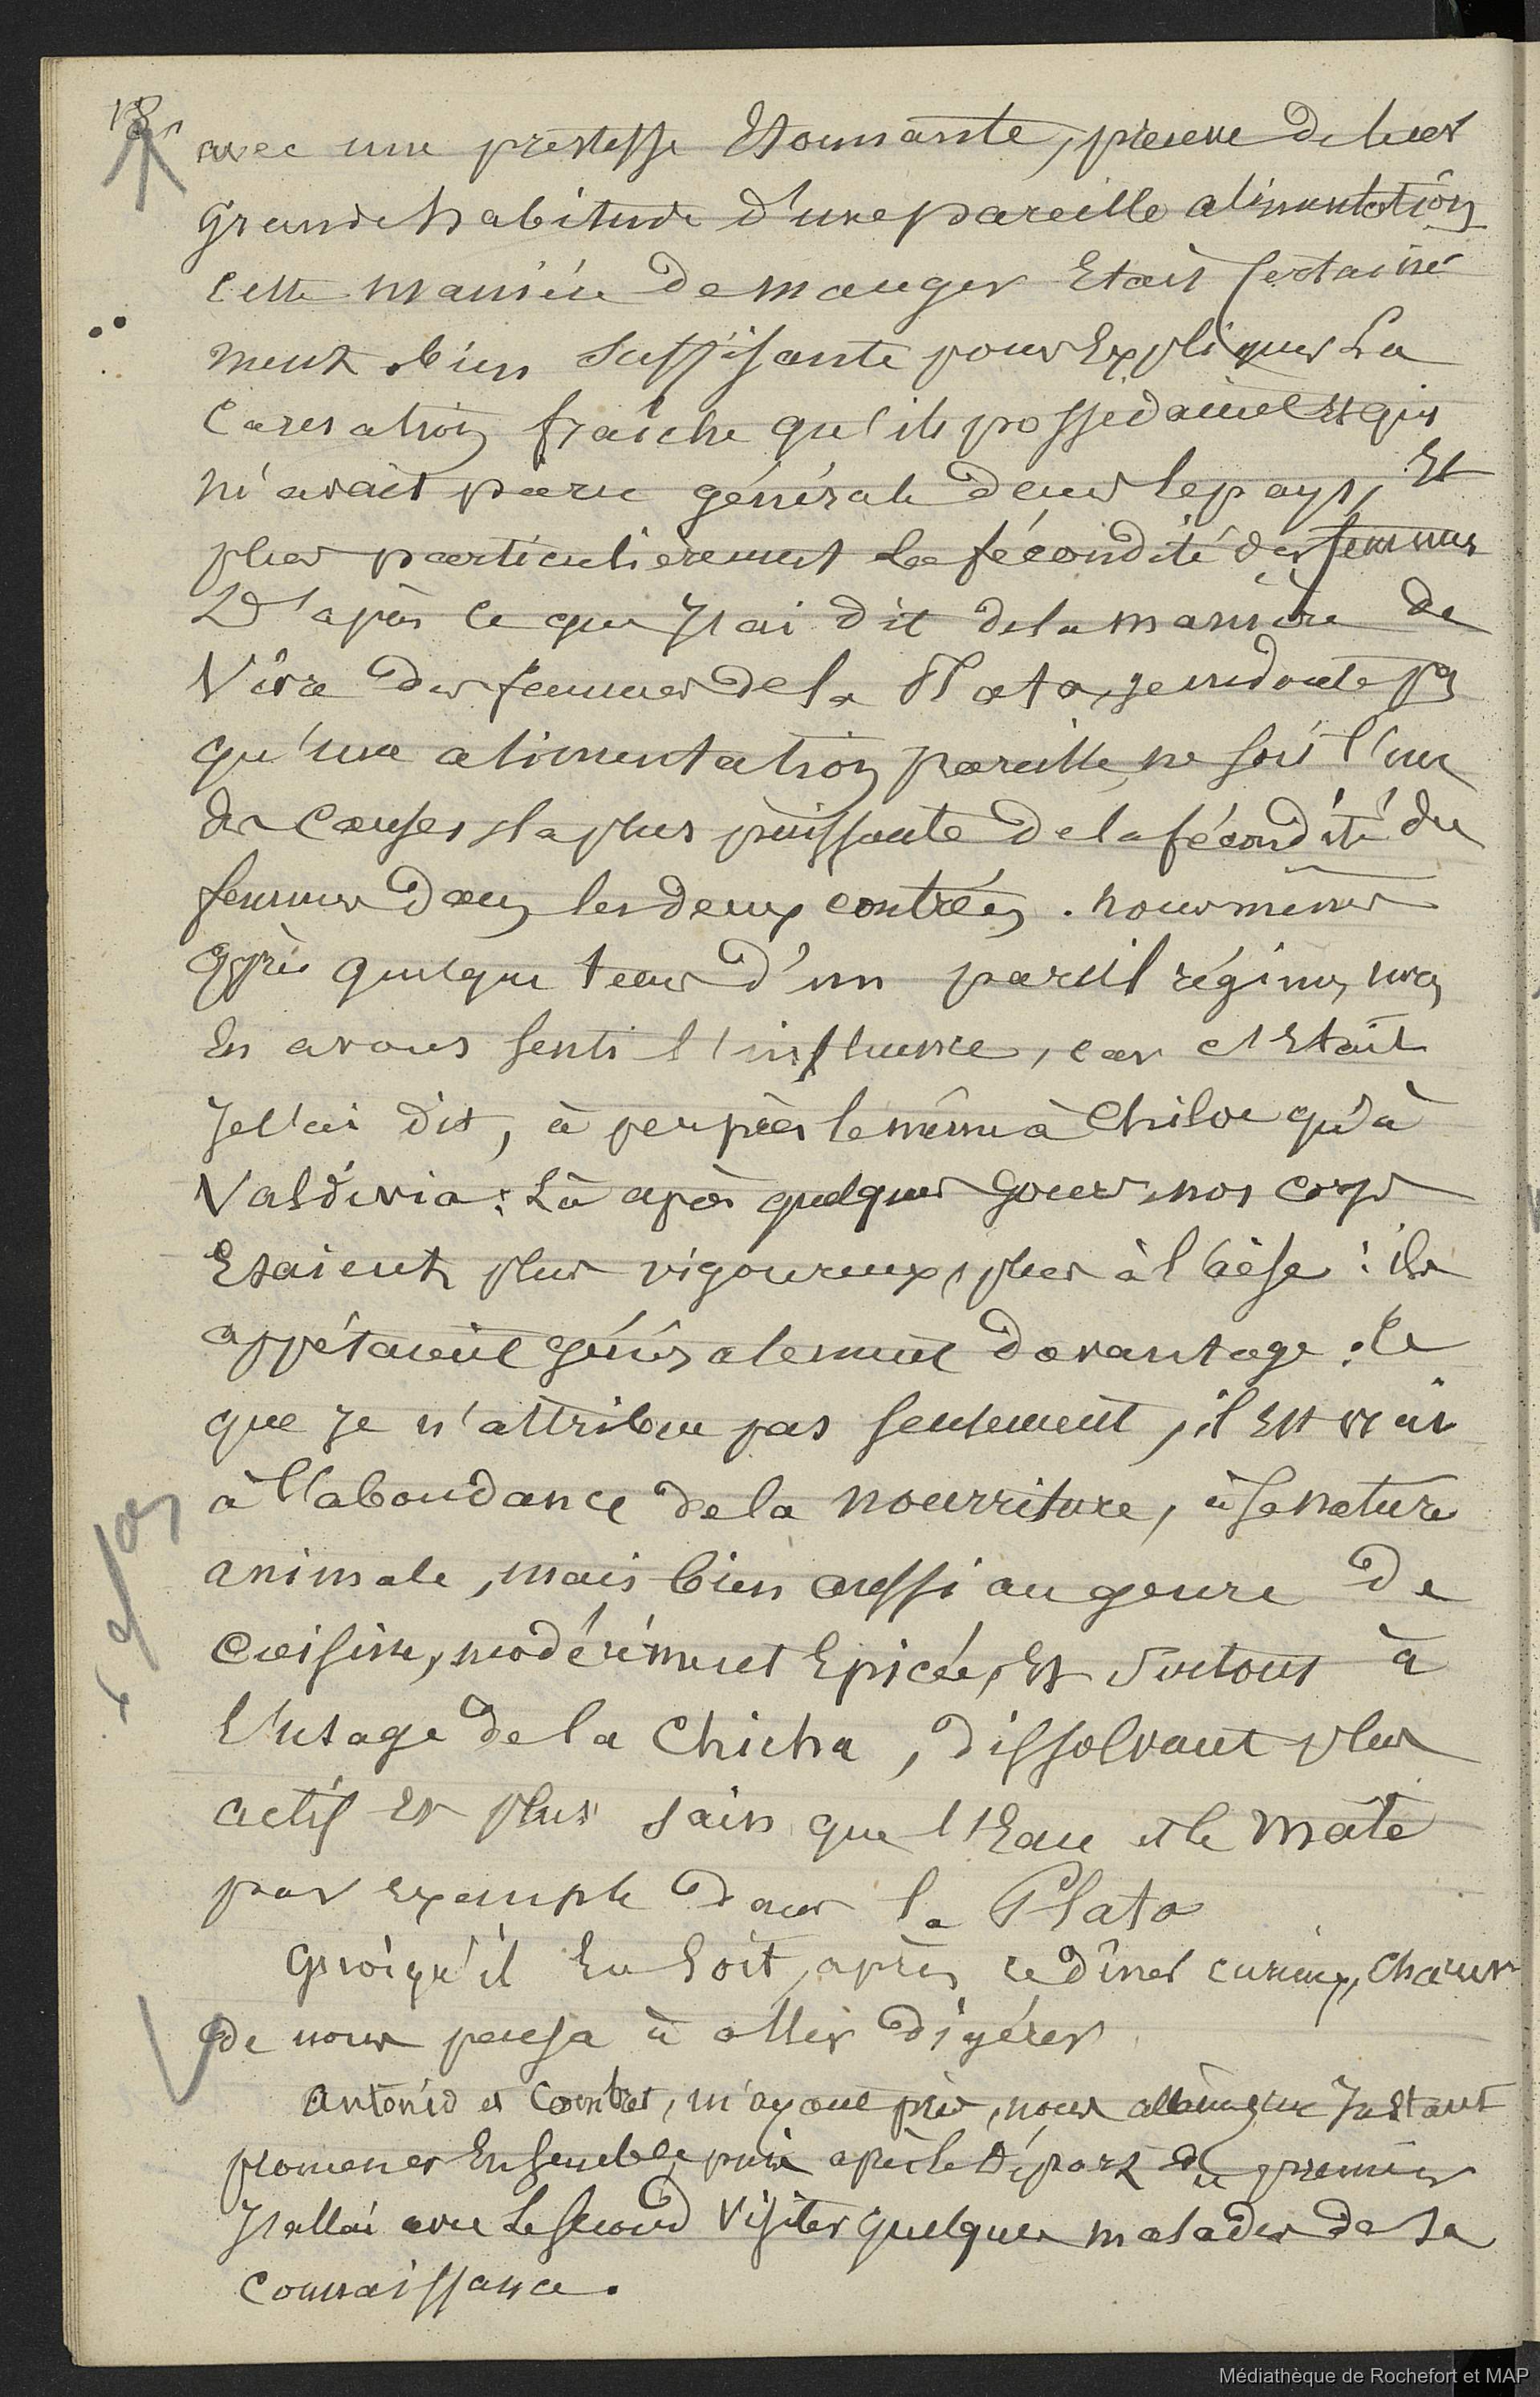 18
avec une prestesse Etonnante, preuve de leur
grande habitude d'une pareille alimentation
Cette manière de manger Etait Certaine
ment bien suffisante pour Expliquer La
Carnation fraîche qu'ils possédaient Et qui
m'avait paru générale dans le pays, Et
plus particulièrement la fécondité des femmes
D'après ce que J'ai dit de la manière de
Vivre des femmes de la Plata, je ne doute pas
qu'une alimentation pareille ne soit l'une
des Causes la plus puissante de la fécondité des
femmes dans les deux contrées. nous mêmes
après quelque tems d'un pareil régime, nous
En avons senti l'influence, car c'Etait
Je l'ai dit, à peu près le même à Chiloe qu'à
Valdivia : Là après quelques jours, nos corps
Etaient plus vigoureux, plus à l'aise : ils
appétaient généralement davantage : Ce
que Je n'attribue pas seulement, il Est vrai
à l'abondance de la nourriture, à sa nature
animale, mais bien aussi au genre de
Cuisine, modérément Epicée, Et Surtout à
l'usage de la Chicha, dissolvant plus
actif Et plus sain que l'Eau et le Maté
par exemple dans la Plata
Quoiqu'il En soit, après ce dîner curieux, Chacun
de nous pensa à aller digérer
Antonio et Combet, m'ayant pris, nous allâmes un Instant
promener Ensemble, puis après le départ du premier
J'allai avec Le Second Visiter quelques malades de sa
Connaissance.
Médiathèque de Rochefort et MAP